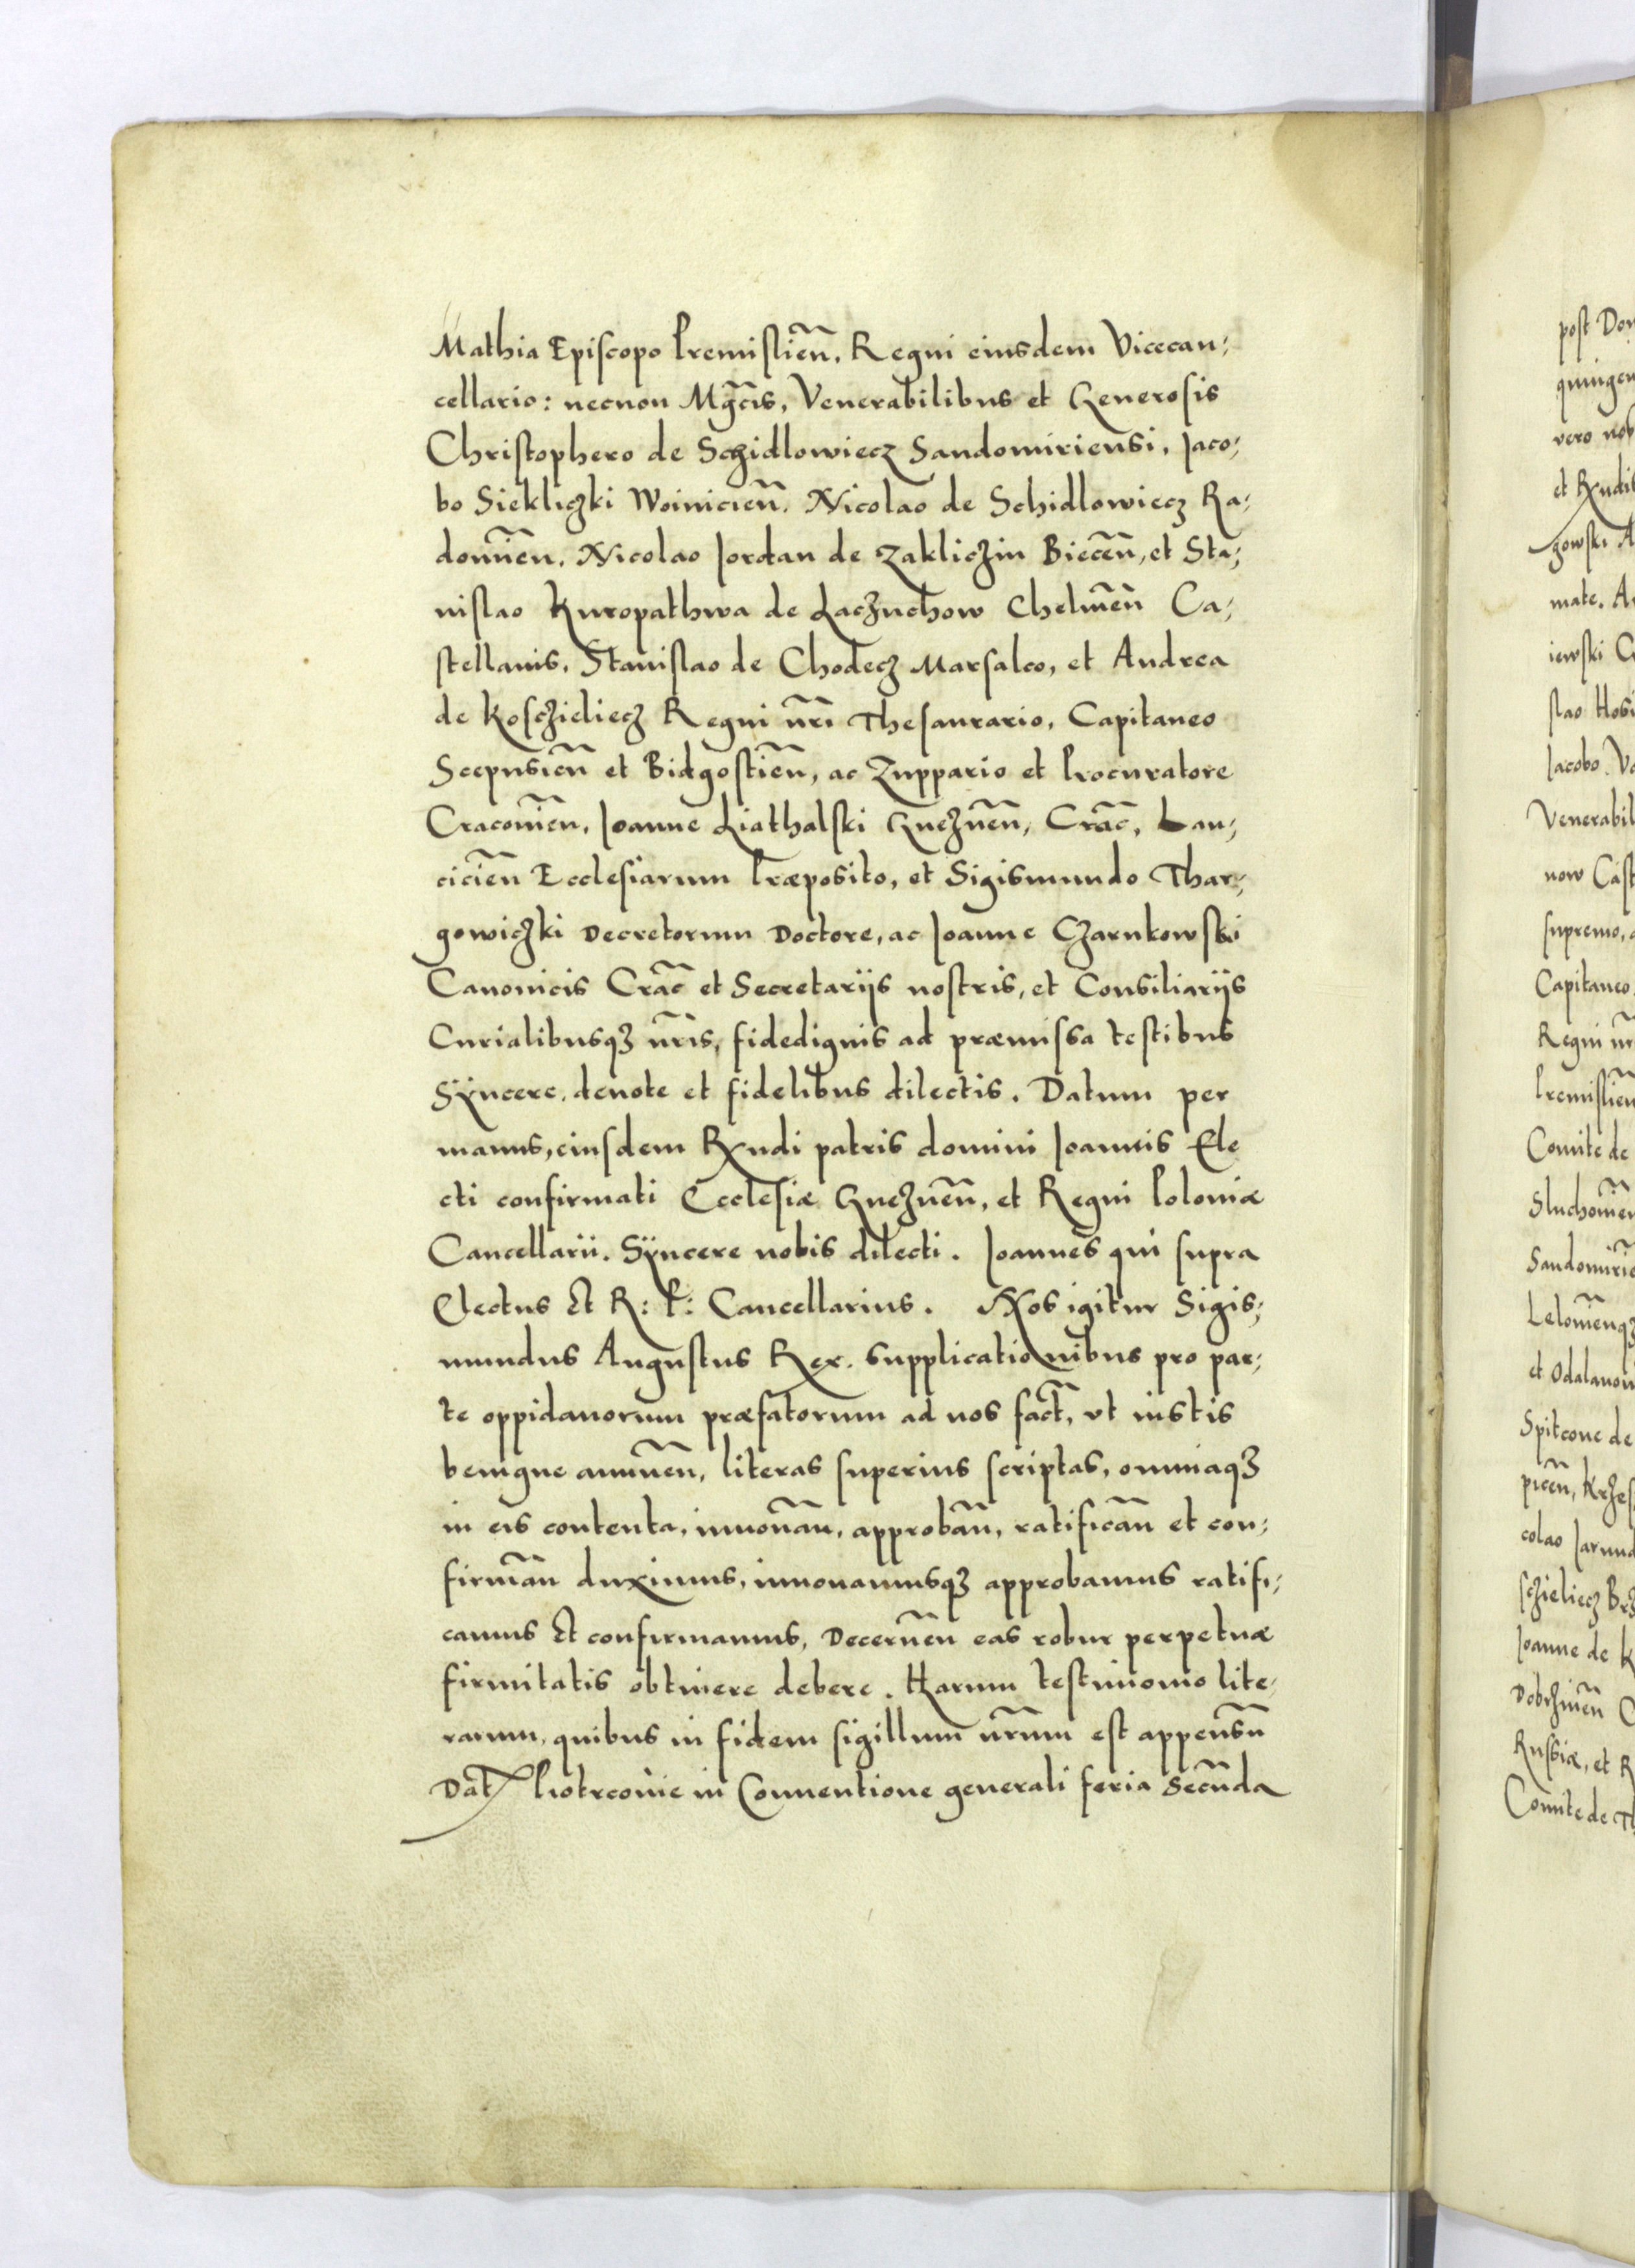 Mathia Episcopo Premislien̄, Regni eiusdem Vicecan;
cellario: necnon Mg̃cis, Venerabilibus et Generosis
Christophero de Schidlowiecz Sandomiriensi, Iaco;
bo Siekliczki Woinicien̄, Nicolao de Schidlowiecz Ra;
domien̄, Nicolao Iordan de Zakliczin Biecen̄, et Sta;
nislao Kuropathwa de Laczuchow Chelmen̄ Ca;
stellanis, Stanislao de Chodecz Marsalco, et Andrea
de Kosczieliecz Regni nr̃i Thesaurario, Capitaneo
Scepusien̄ et Bidgostien̄, ac Zuppario et Procuratore
Cracovien̄, Ioanne Liathalski Gneznen̄, Crac̃, Lan;
cicien̄ Ecclesiarum Præposito, et Sigismundo Thar;
gowiczki Decretorum Doctore, ac Ioanne Czarnkowski
Canonicis Crac̃ et Secretarijs nostris, et Consiliarijs
Curialibusqꝫ nr̃is, fidedignis ad præmissa testibus
Sÿncere, deuote et fidelibus dilectis. Datum per
manus, eiusdem Rx̃ndi patris domini Ioannis Ele
cti confirmati Ecclesiæ Gneznen̄, et Regni Poloniæ
Cancellarii. Sÿncere nobis dilecti. Ioannes qui supra
Electus Et R: P: Cancellarius. Nos igitur Sigis;
mundus Augustus Rex. supplicationibus pro par;
te oppidanorum præfatorum ad nos fact̃, vt iustis
benigne annuen̄, literas superius scriptas, omniaqꝫ
in eis contenta, innouan̄, approban̄, ratifican̄ et con;
firman̄ duximus, innouamusqꝫ approbamus ratifi;
camus Et confirmamus, Decernen̄ eas robur perpetuæ
firmitatis obtinere debere. Harum testimonio lite;
rarum, quibus in fidem sigillum nr̃um est appensū
Dat̃ Piotrcouie in Conuentione generali feria secūda
post
vero
gowski
mate.
iewski
Iacobo.
supremo,
Capitaneo
Regni
Premislien̄
Comite de
Spitcone de
Ioanne de
Russiæ, et
Comite de